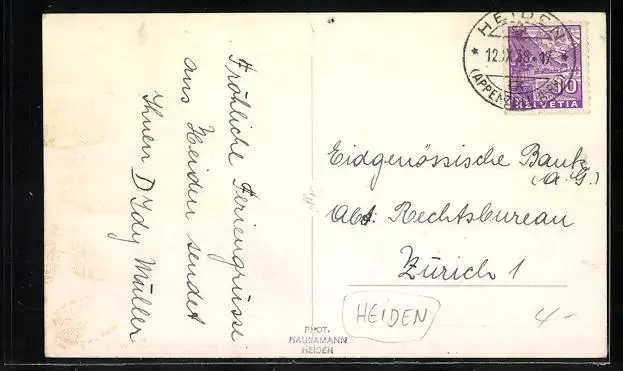 Fröhliche Feriengrüsse
aus Heiden sendet
Ihnen D Idy Müller
HEIDEN
12.IX.38.-17
(APPENZELL A.RH.)
10
HELVETIA
Eidgenössische Bank
(A.G.)
Abt. Rechtsbureau
Zürich 1
HEIDEN
4-
PHOT.
HAUSAMANN
HEIDEN